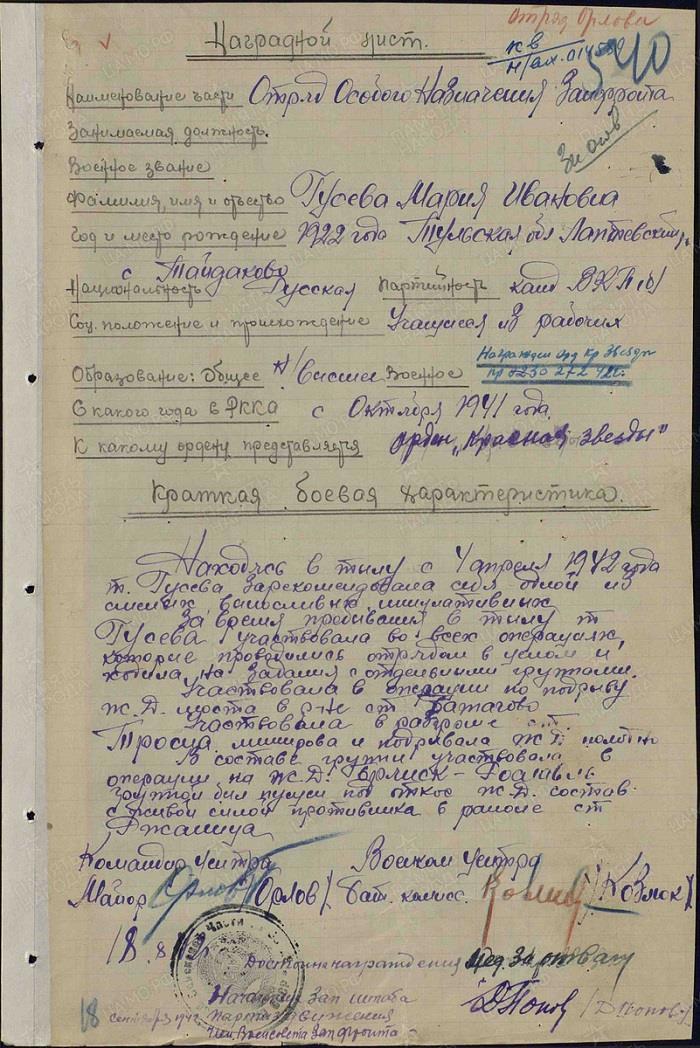 Отряд Орлова
Наградной лист.
КВ
540
Наименование части Отряд Особого Назначения Запфронта
Занимаемая должность.
Военное звание
Фамилия, имя и отчество Гусева Мария Ивановна
Год и место рождение 1922 года Тульская обл Лаптевский
с Тайдаково
Национальность Русская Партийность канд ВКП(б)
Соц. положение и происхождение Учащиеся из рабочих
Награжден орд Кр Звезды
Образование: Общее н/высшее Военное
С какого года в РККА с Октября 1941 года.
К какому ордену представляется орден „Красная звезды"
Краткая боевая характеристика.
Находясь в тылу с 4 апреля 1942 года
т. Гусева зарекомендовала себя одной из
смелых выносливых
За время пребывания в тылу т
Гусева участвовала во всех операциях,
которые проводились отрядом в целом и
ходила на задания с отдельными группами.
Участвовала в операции по подрыву
Ж.Д. моста в р-не ст
Участвовала в разгроме ст.
Тросна минирова и подрывала Ж.Д. полотно
В составе групы участвовала в
операции на Ж.Д.
групой был пущен под откос Ж.Д. состав
с живой силой противника в районе ст
Ржаница
Командир Центра Военком Центра
Майор Орлов /Орлов/. Бат. комисс.
18.8
Достойна награждения мед. За отвагу
Начальник Зап штаба
партиз движения
Член Военсовета Запфронта
ДПопов /Д Попов/
18 сентября 194